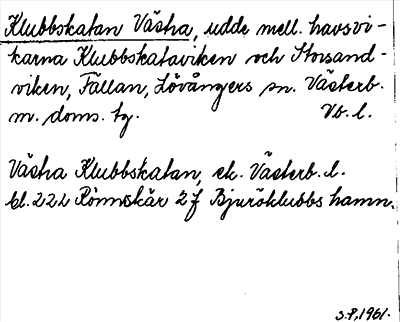 Klubbskatan Västra, udde mell. havsvi-
karna Klubbskataviken och Storsand-
viken, Fällan, Lövångers sn. Västerb.
m. doms. tg. Vb. l.
Västra Klubbskatan, ek. Västerb. l.
bl. 222 Rönnskär 2f Bjuröklubbs hamn.
S.P., 1961.